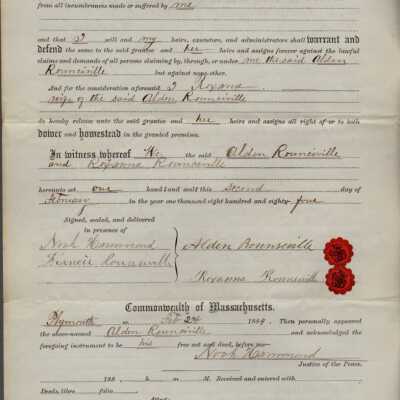 from all incumbrances made or suffered by me
and that I will and my heirs, executors, and administrators shall warrant and
defend the same to the said grantee and her heirs and assigns forever against the lawful
claims and demands of all persons claiming by, through, or under me the said Alden
Rounseville but against none other.
And for the consideration aforesaid I Roxana
wife of the said Alden Rounseville
do hereby release unto the said grantee and her heirs and assigns all right of or to both
dower and homestead in the granted premises.
In witness whereof We the said Alden Rounseville
and Roxanna Rounseville
hereunto set our hand and seal this Second day of
February in the year one thousand eight hundred and eighty-four
Signed, sealed, and delivered
in presence of
Noah Hammond
Alden Rounseville
Roxanna Rounseville
Commonwealth of Massachusetts.
Plymouth ss Feb 2d 1884. Then personally appeared
the above-named Alden Rounseville and acknowledged the
foregoing instrument to be his free act and deed, before me,
Noah Hammond
Justice of the Peace.
188 , h m M. Received and entered with
Deeds, libro folio